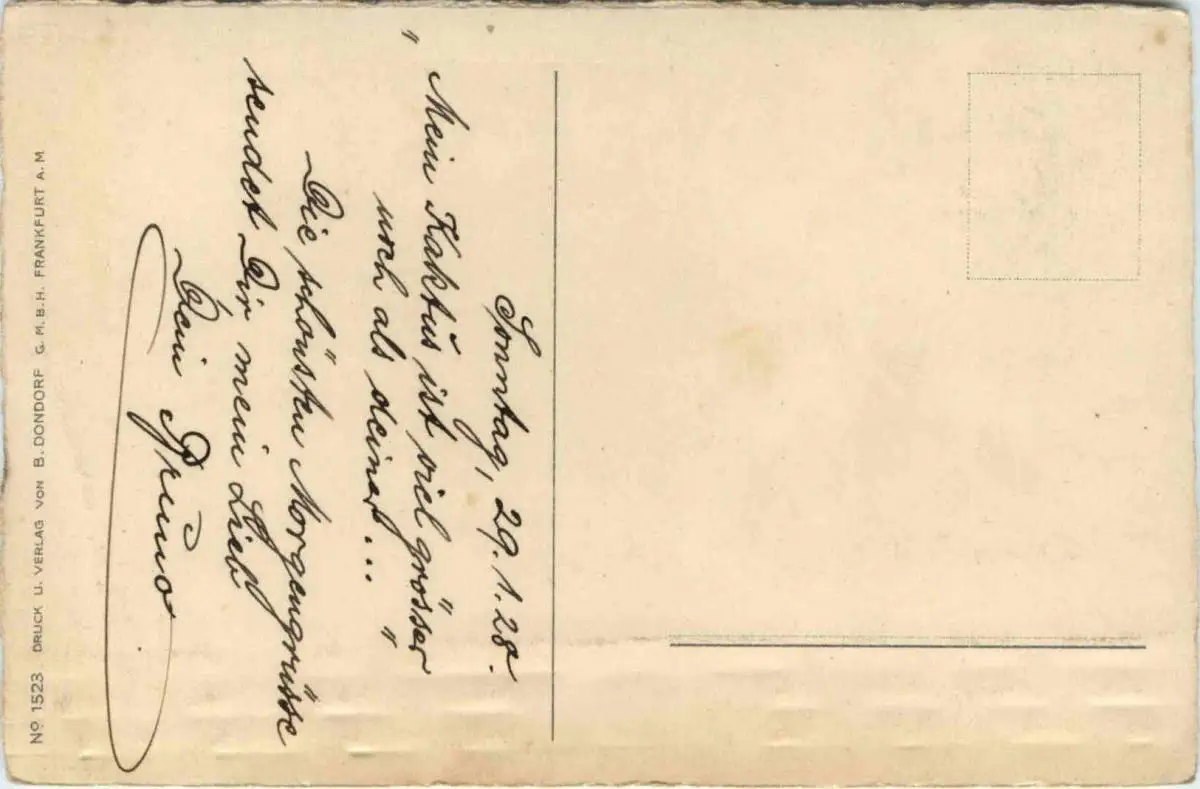 Sonntag, 29.1.28.
"Mein Kaktus ist viel grösser
noch als deiner..."
Die schönsten Morgengrüsse
sendet Dir mein Lieb
Dein Bruno
No 1523 DRUCK U. VERLAG VON B. DONDORF G. M. B. H. FRANKFURT A. M